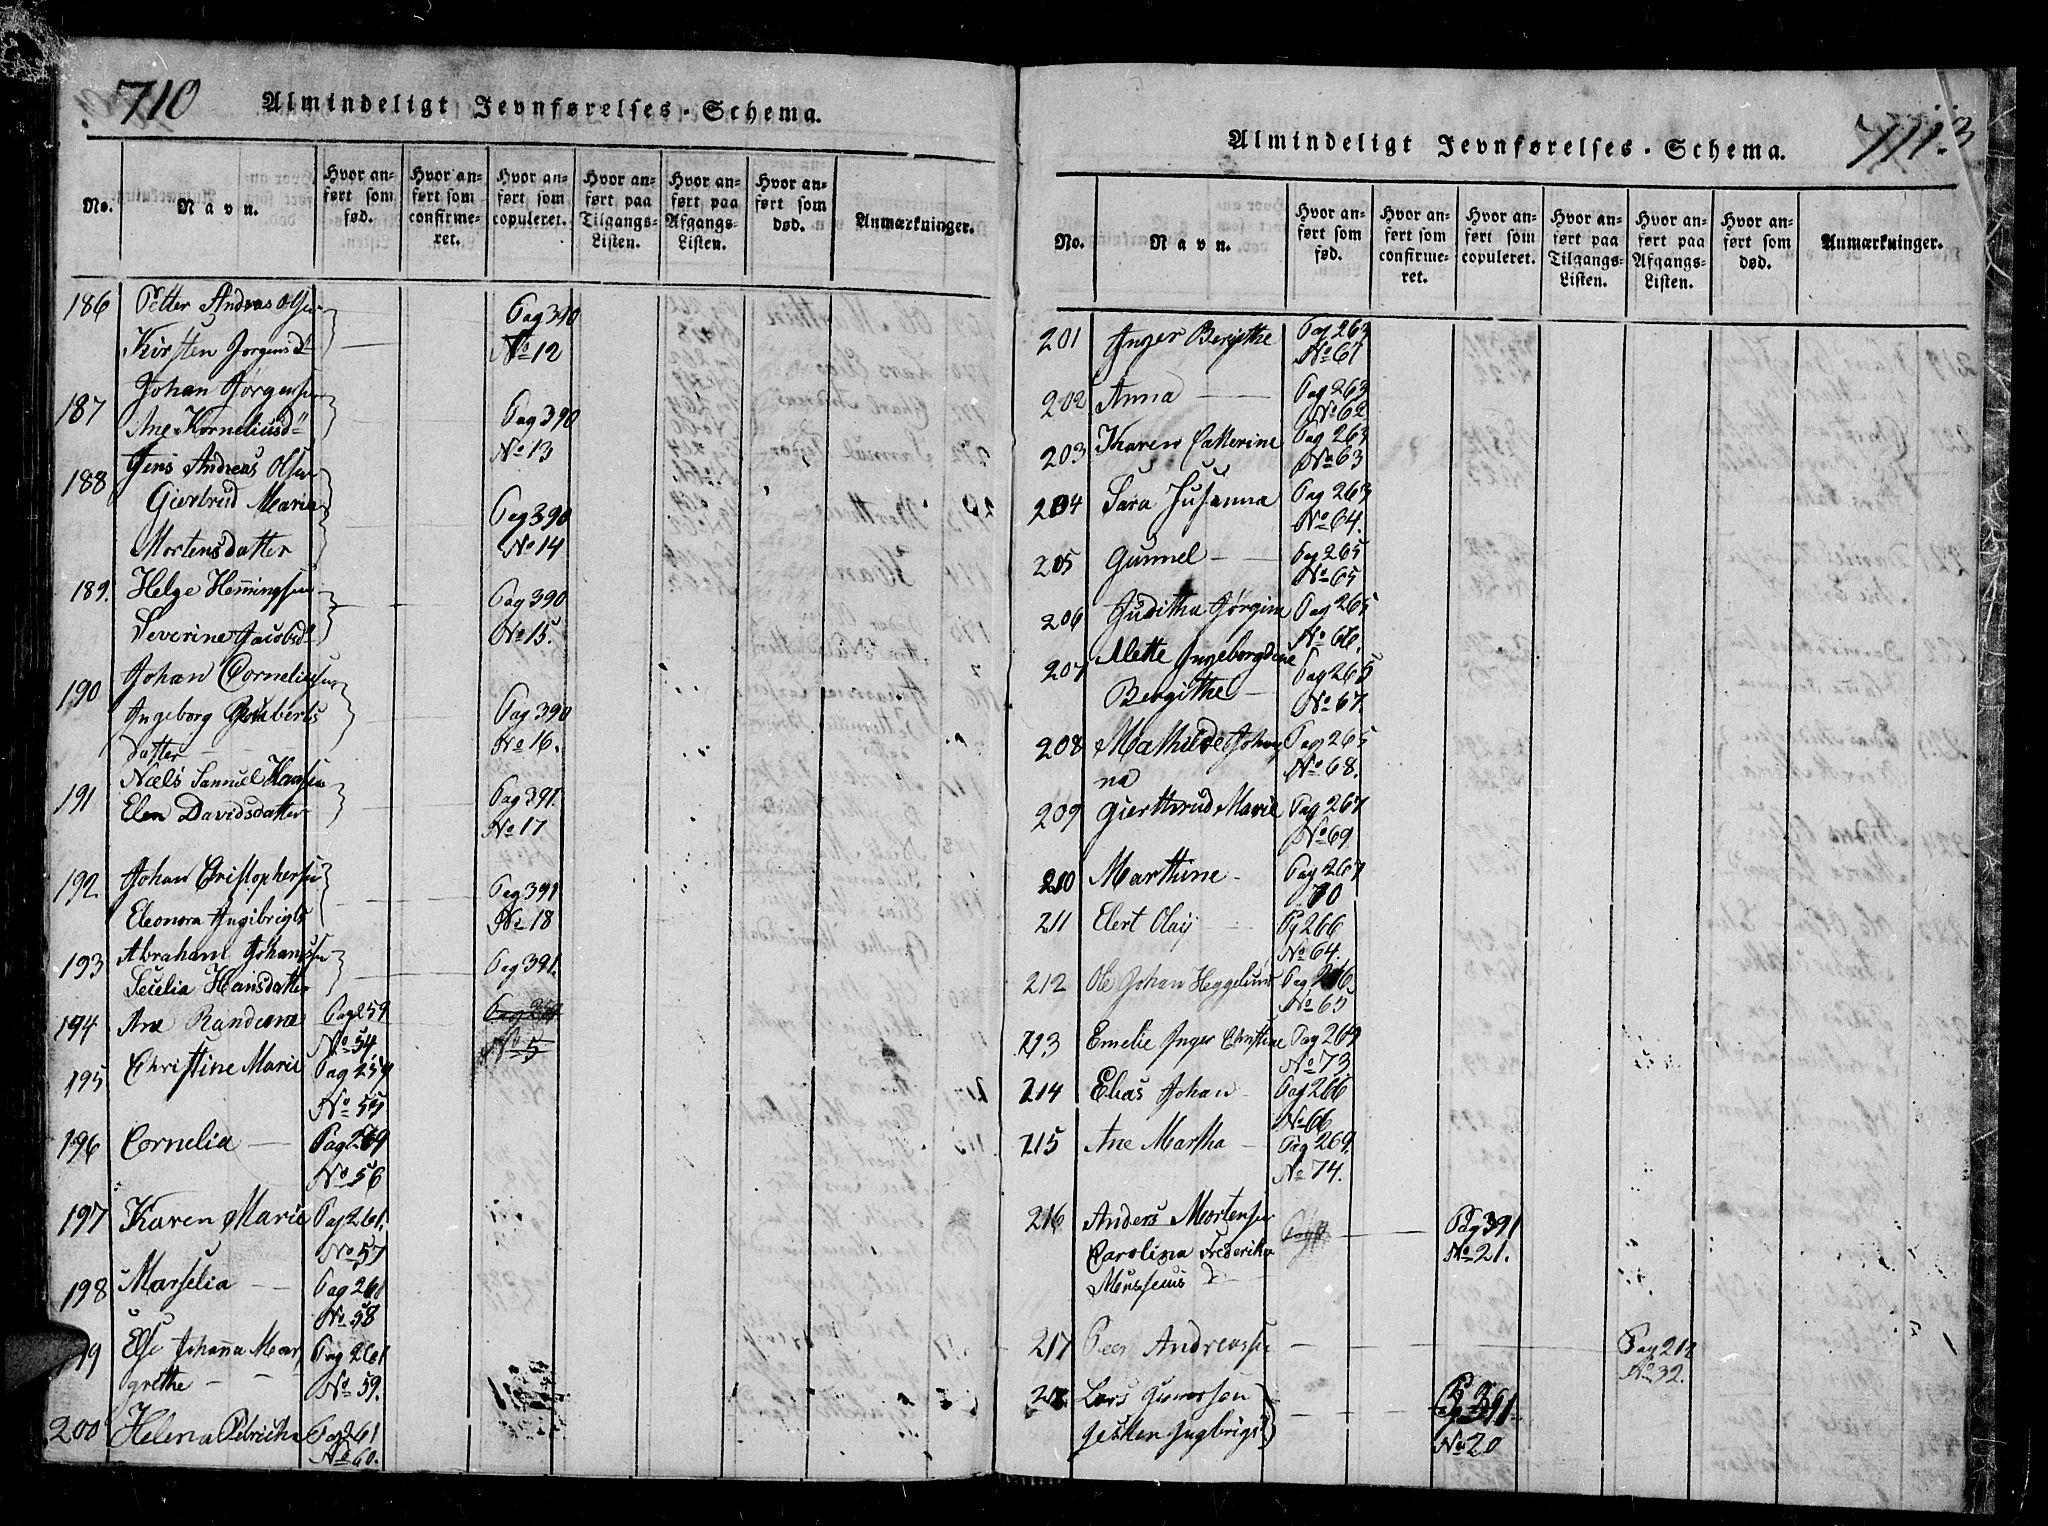 710
Almindeligt Jevnførelses-Schema.
No.
Navn.
Hvor anført som fød.
Hvor anført som confirmeret.
Hvor anført som copuleret.
Hvor anført paa Tilgangs-Listen.
Hvor anført paa Afgangs-Listen.
Hvor anført som død.
Anmærkninger.
186 Petter Andreas Olsen Pag 390
Kirsten Jorgensd No 12
Johan Jørgensen
187 Pag 390
Ane Korneliusd No 13
188 Jens Andreas Olsen
Giertrud Maria Pag 390
Mortensdatter No 14
189. Helge Henningsen Pag 390
Severine Jacobsd No 15.
Johan Corneliussen
190 Pag 390
Ingeborg
datter No 16.
Niels Samuel Hansen
191 Pag 391.
Elen Davidsdatter No 17
192 Johan Christophersen Pag 391
Eleonora Ingibrigts No 18
193 Abraham Johannsen Pag 391.
Secelia Hansdatter
194 Ane Randiene Pag 259 No 54
No 5
195 Christine Marie Pag 259
No 55
196 Cornelia — Pag 259
No 56
197 Karen Marie Pag 261.
No 57
198 Marselia — Pag 261
No 58
Else Johanna Mar Pag 261
grethe — — No 59.
200 Helena Pag 261
No 60.
711.
Almindeligt Jevnførelses-Schema.
No.
Navn.
Hvor anført som fød.
Hvor anført som confirmeret.
Hvor anført som copuleret.
Hvor anført paa Tilgangs-Listen.
Hvor anført paa Afgangs-Listen.
Hvor anført som død.
Anmærkninger.
201 Inger Bergithe Pag 263
No 61
202 Anna — Pag 263
No 62
203 Karen Catterine Pag 263
No 63
204 Sara Susanna Pag 263
No 64.
205 Gunnel — Pag 265
No 65
206 Juditha Jørgine Pag 265
No 66.
207 Mette Ingeborg Pag 265
Bergithe — No 67.
208 Mathilde Johan Pag 265
na No 68.
209 Gierthrud Marie Pag 267
No 69
210 Marthine — Pag 267
70
211 Elert Olaij — Pg 266
No 64.
212 Ole Johan Heggelund Pag 266
No 65
213 Emelie Inger Christine Pag 269
No 73
214 Elias Johan — Pag 266
No 66
215 Ane Martha — Pag 269.
No 74.
216 Anders Mortensen Pag 391
Carolina Frederika No 21.
217 Peer Andreassen Pag 212
No 32.
218. Lars Gunerson Pg 391
No 20